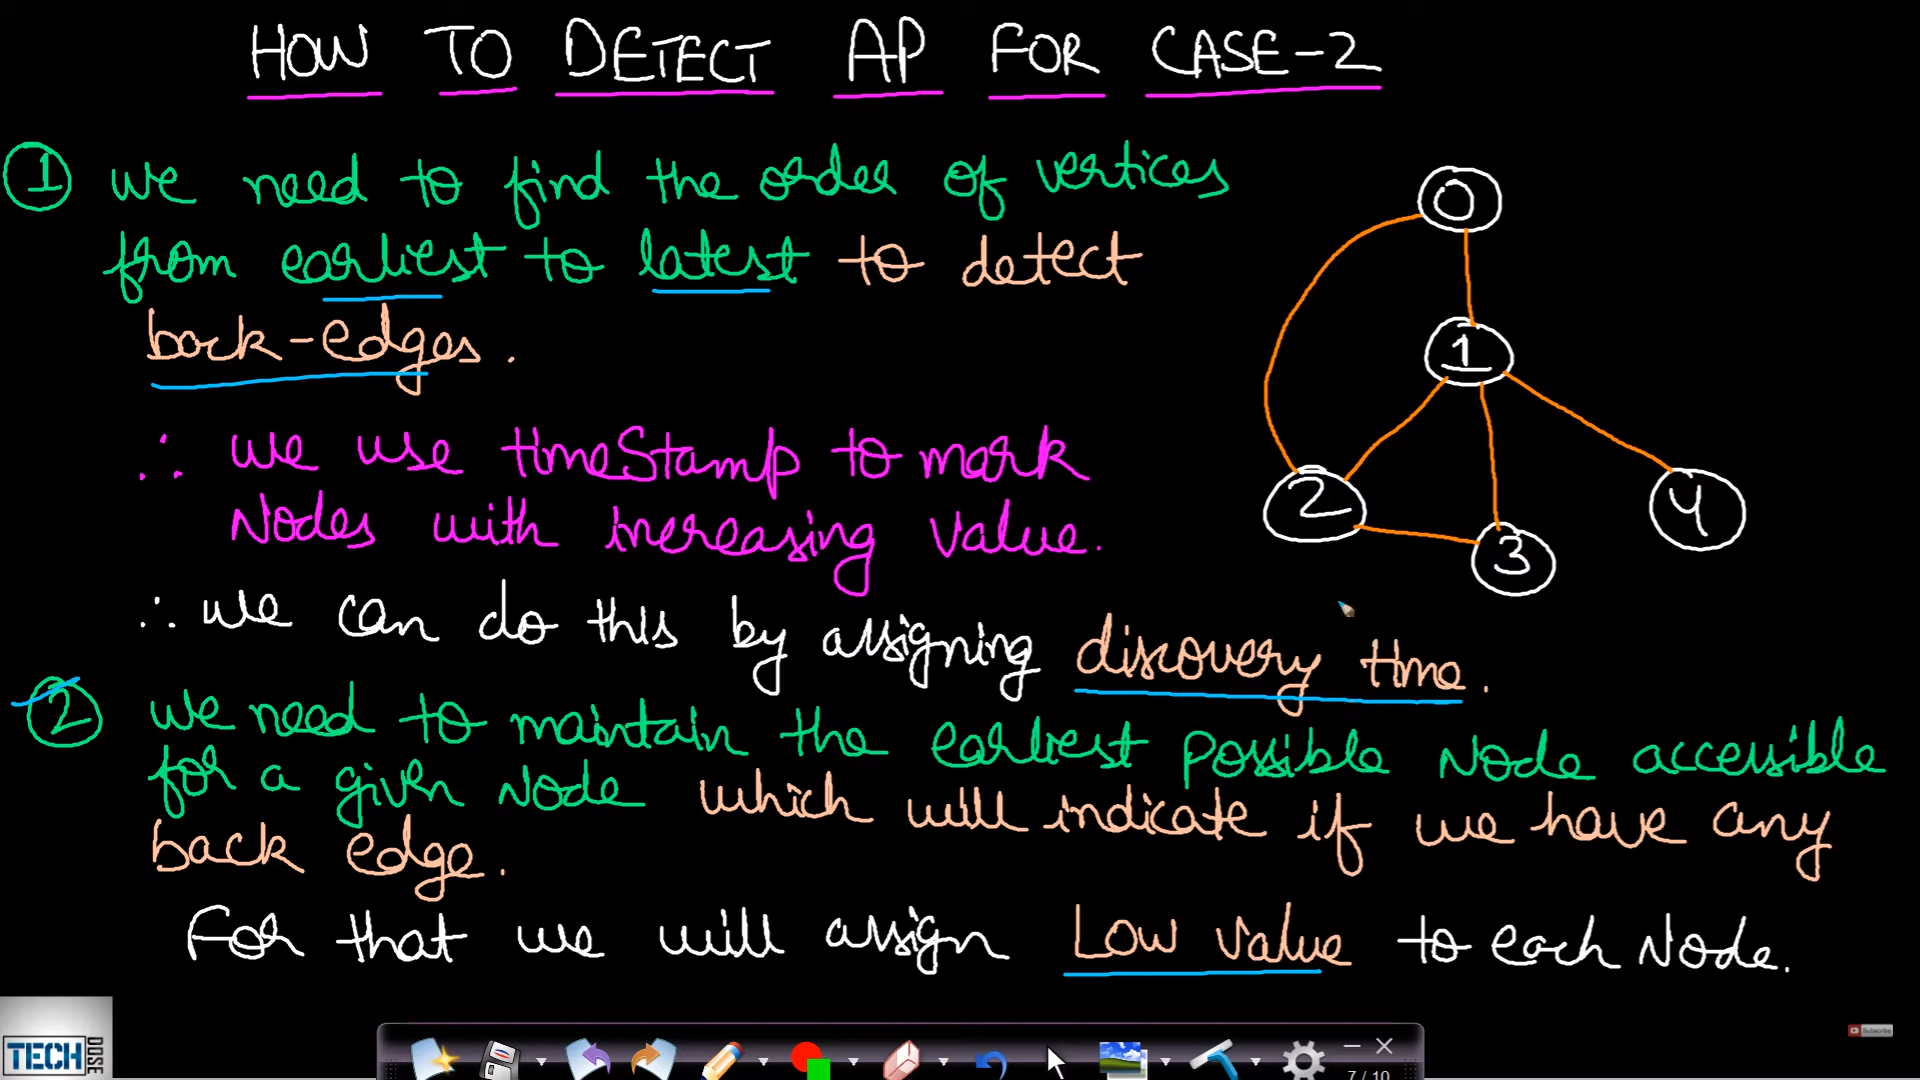 HOW TO DETECT AP FOR CASE-2
① we need to find the order of vertices
from earliest to latest to detect
back-edges.
∴ we use timeStamp to mark
Nodes with increasing value.
∴ we can do this by assigning discovery time.
② we need to maintain the earliest possible Node accessible
for a given Node which will indicate if we have any
back edge.
For that we will assign Low value to each Node.
0
1
2
3
4
TECH DOSE
Subscribe
7 / 10